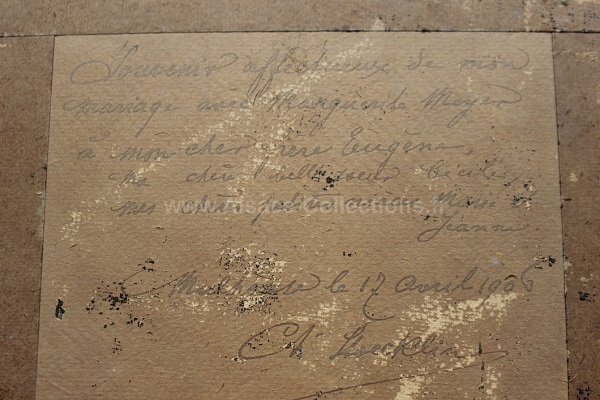 Souvenir affectueux de mon
mariage avec Marguerite Meyer
à mon cher frère Eugène,
ma chère belle soeur Cécile,
mes Marie &
Jeanne.
www.Alsace-Collections.fr
Mulhouse le 17 avril 1906
Ch